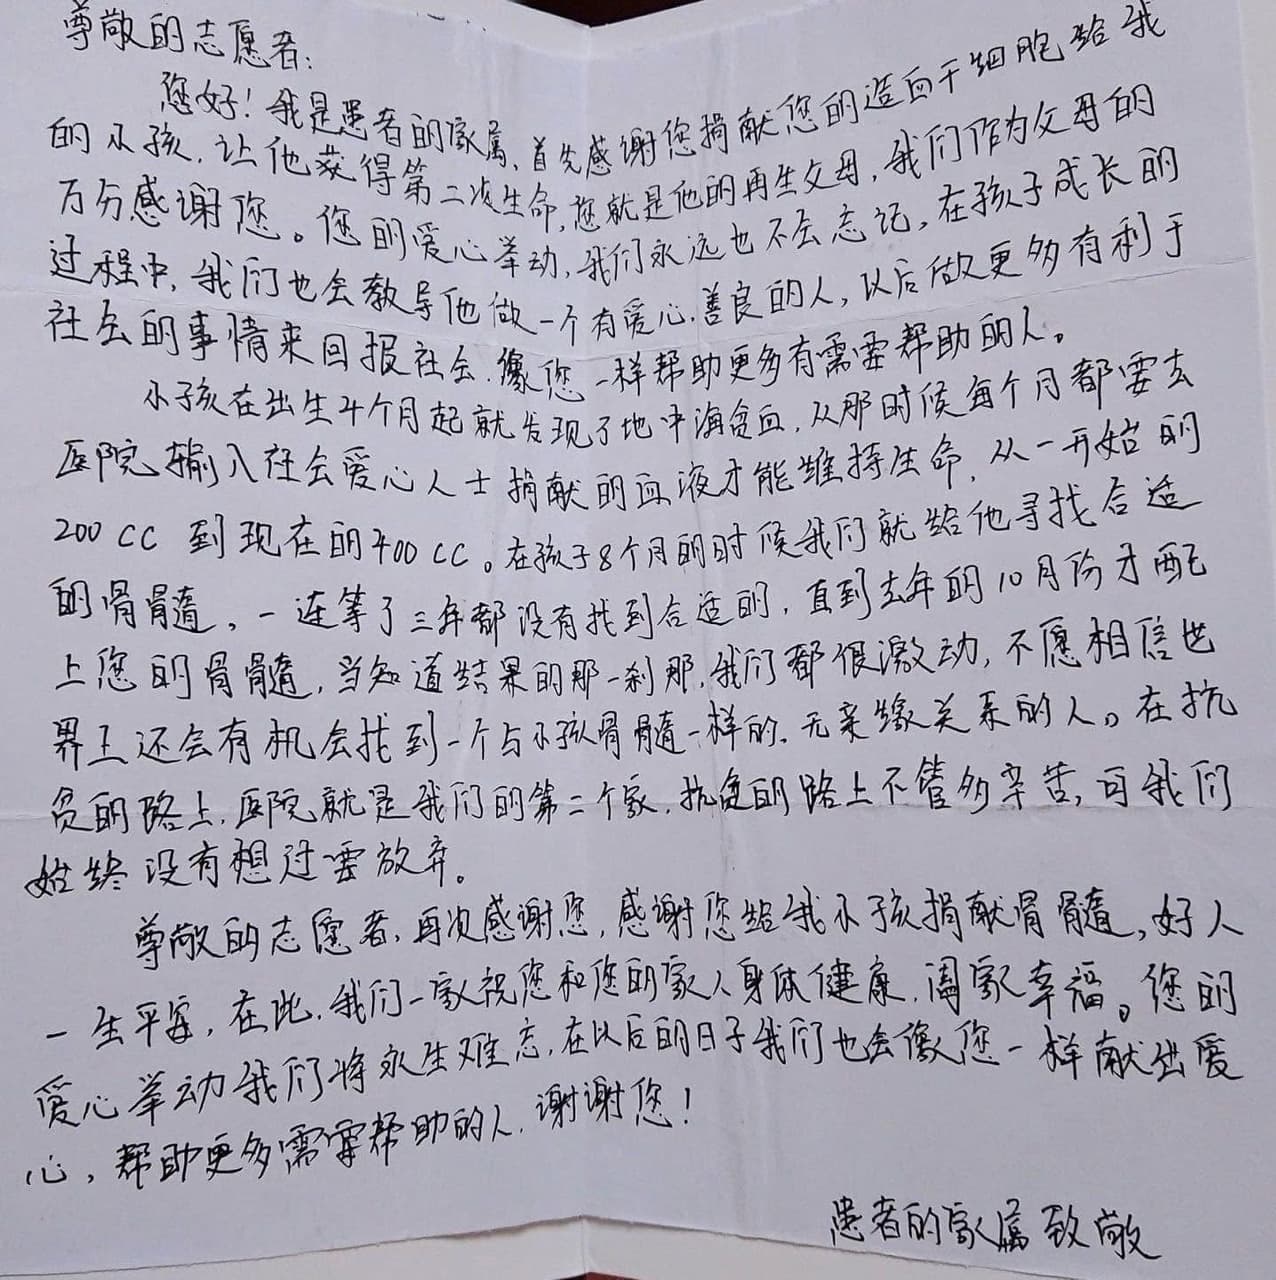 尊敬的志愿者：
您好！我是患者的家属，首先感谢您捐献您的造血干细胞给我
的小孩，让他获得第二次生命，您就是他的再生父母，我们作为父母的
万分感谢您。您的爱心举动，我们永远也不会忘记，在孩子成长的
过程中，我们也会教导他做一个有爱心、善良的人，以后做更多有利于
社会的事情来回报社会，像您一样帮助更多有需要帮助的人。
小孩在出生4个月起就发现了地中海贫血，从那时候每个月都要去
医院输入社会爱心人士捐献的血液才能维持生命，从一开始的
200CC 到现在的400CC。在孩子8个月的时候我们就给他寻找合适
的骨髓，一连等了三年都没有找到合适的，直到去年的10月份才配
上您的骨髓，当知道结果的那一刹那，我们都很激动，不愿相信世
界上还会有机会找到一个与小孩骨髓一样的、无亲缘关系的人。在抗
贫的路上，医院就是我们的第二个家，抗贫的路上不管多辛苦，可我们
始终没有想过要放弃。
尊敬的志愿者，再次感谢您，感谢您给我小孩捐献骨髓，好人
一生平安，在此，我们一家祝您和您的家人身体健康，阖家幸福。您的
爱心举动我们将永生难忘，在以后的日子我们也会像您一样献出爱
心，帮助更多需要帮助的人，谢谢您！
患者的家属致敬